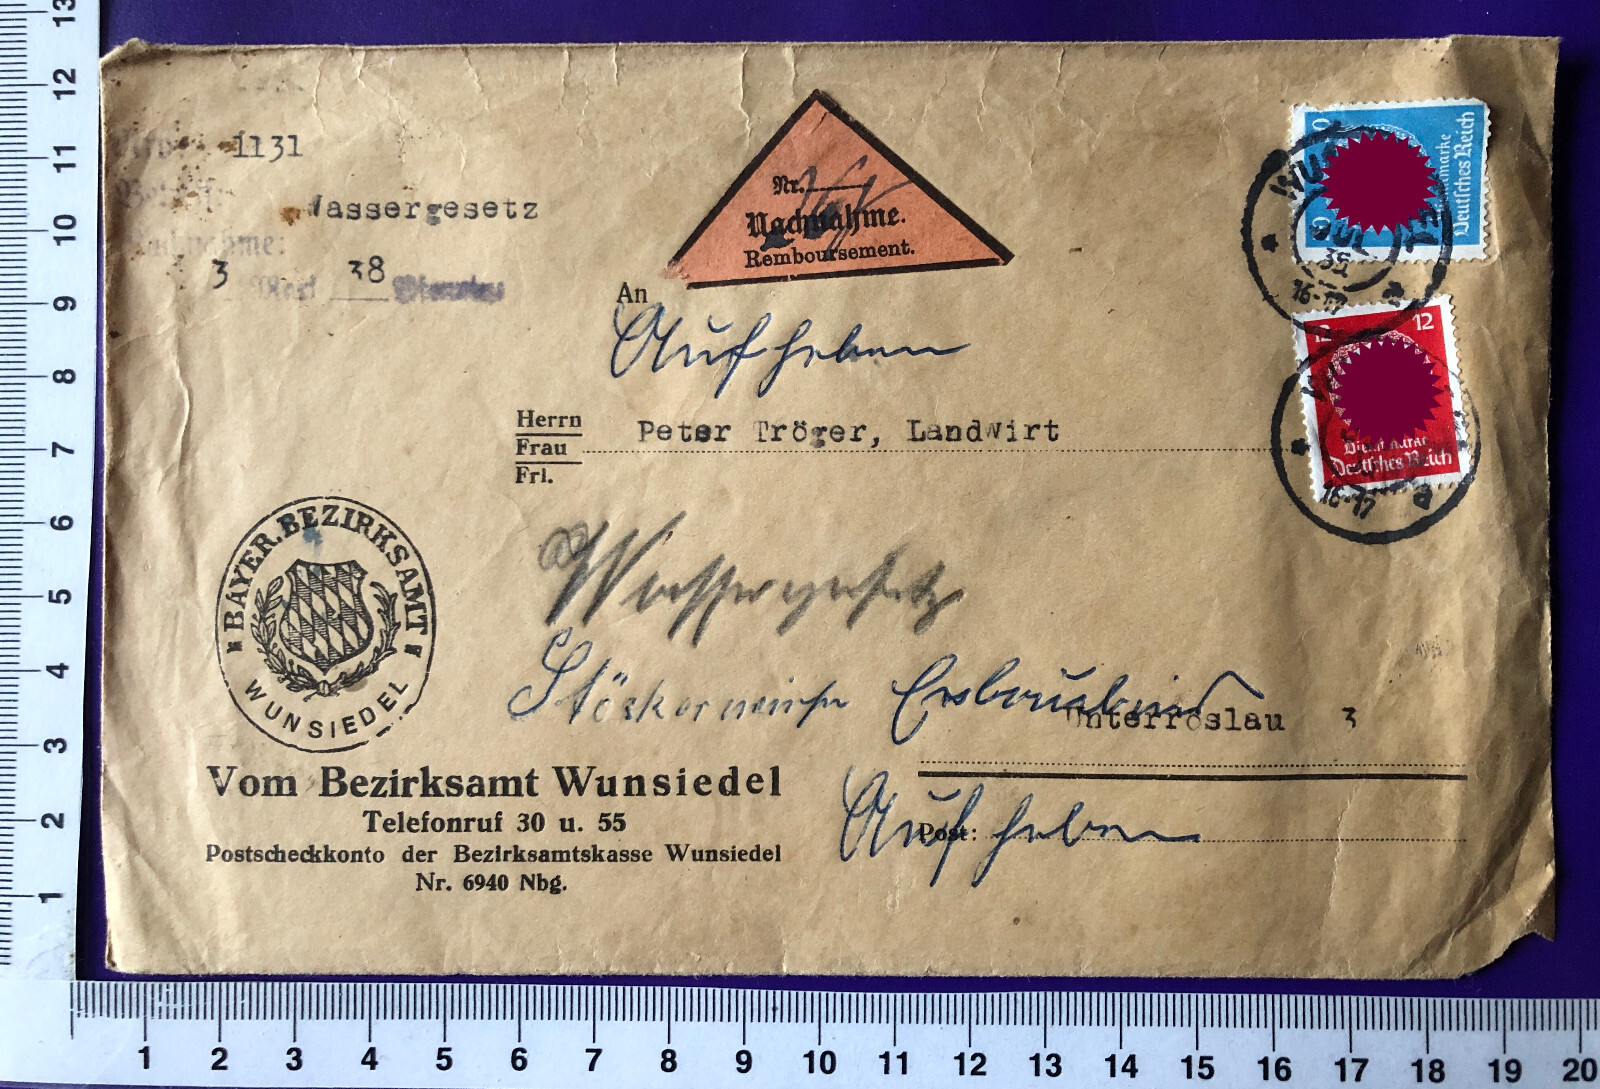 1131
Wassergesetz
Nachnahme:
3 38
Nr.
Nachnahme.
Remboursement.
Deutsches Reich
16-17
12 12
Deutsches Reich
16-17
An
Aufheben
Herrn
Frau
Frl.
Peter Tröger, Landwirt
BAYER. BEZIRKSAMT
WUNSIEDEL
Wassergesetz
Unterröslau 3
Vom Bezirksamt Wunsiedel
Telefonruf 30 u. 55
Postscheckkonto der Bezirksamtskasse Wunsiedel
Nr. 6940 Nbg.
Post:
Aufheben
13
12
11
10
9
8
7
6
5
4
3
2
1
1 2 3 4 5 6 7 8 9 10 11 12 13 14 15 16 17 18 19 20